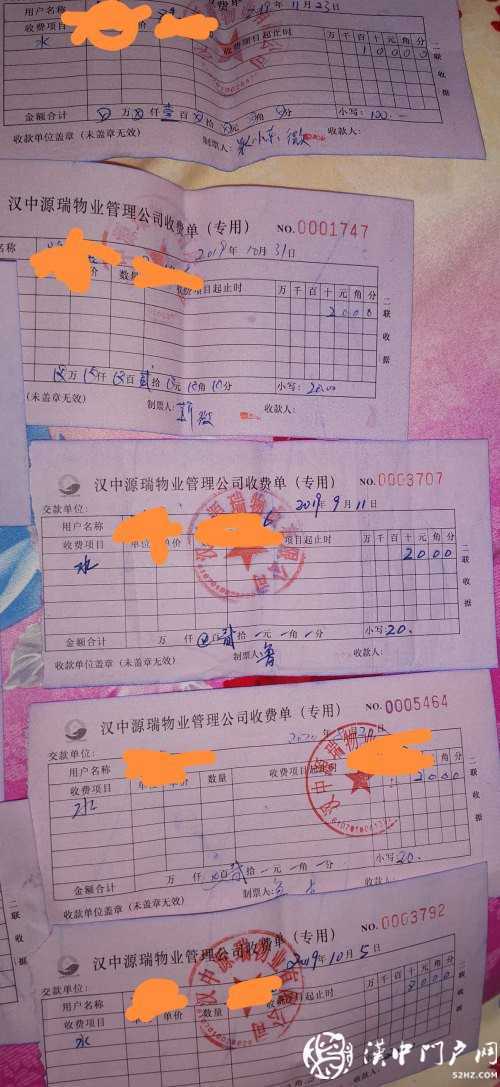 用户名
2018年11月23日
收费项目 收费项目起止时 万千百十元角分
水 10000
二联 收据
金额合计 万 仟壹百 拾 元 角 分 小写:100.—
收款单位盖章(未盖章无效) 制票人: 收款人:
汉中源瑞物业管理公司收费单(专用) NO.0001747
名称 2019年10月31日
价 数量 收费项目起止时 万千百十元角分
2000
二联 收据
万 仟 百贰拾 元 角 分 小写:2000
(未盖章无效) 制票人: 薇
汉中源瑞物业管理公司收费单(专用) NO.0003707
交款单位: 2019年9月11日
用户名称
收费项目 单位 单价 项目起止时 万千百十元角分
水 2000
二联 收据
金额合计 万 仟 百贰拾一元一角一分 小写:20.
收款单位盖章(未盖章无效) 制票人:鲁 收款人:
汉中源瑞物业管理公司收费单(专用) NO.0005464
交款单位: 2020年
用户名称
收费项目 单价 数量 收费项目起止时
水 2000
二联 收据
金额合计 万 仟 百贰拾一元一角一分 小写:20.
收款单位盖章(未盖章无效) 制票人: 收款人:
汉中源瑞物业管理公司收费单(专用) NO.0003792
交款单位: 2019年10月5日
用户名称
收费项目 单价 数量 起止时 万千百十元角分
水
二联 收据
汉中门户网
52HZ.COM